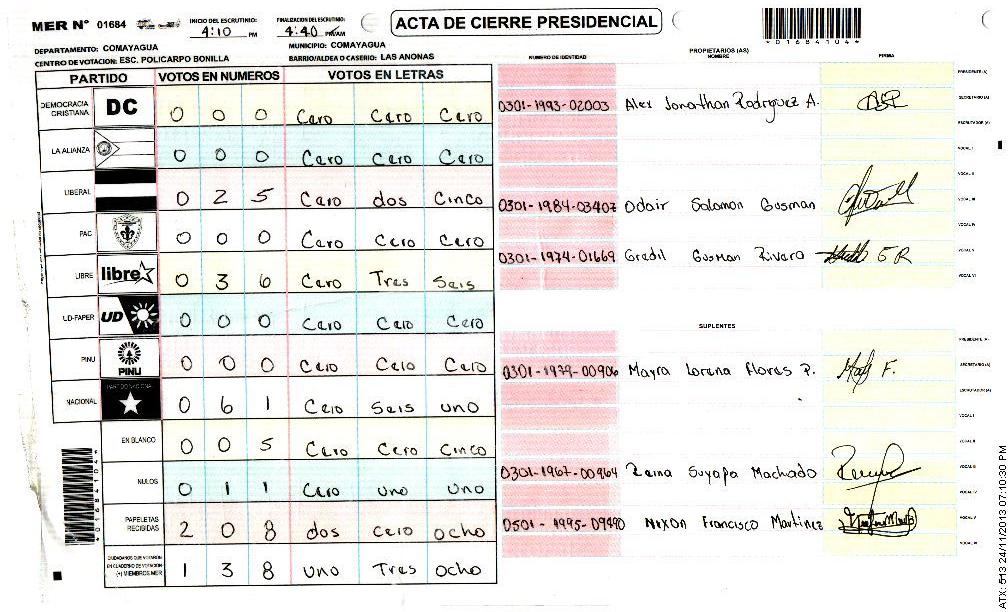 MER N° 01684
INICIO DEL ESCRUTINIO: 4:10 PM
FINALIZACION DEL ESCRUTINIO: 4:40 PM/AM
ACTA DE CIERRE PRESIDENCIAL
*01684104*
DEPARTAMENTO: COMAYAGUA
MUNICIPIO: COMAYAGUA
CENTRO DE VOTACION: ESC. POLICARPO BONILLA
BARRIO/ALDEA O CASERIO: LAS ANONAS
PARTIDO VOTOS EN NUMEROS VOTOS EN LETRAS
DEMOCRACIA CRISTIANA DC 0 0 0 Cero Cero Cero
LA ALIANZA 0 0 0 Cero Cero Cero
LIBERAL 0 2 5 Cero dos Cinco
PAC 0 0 0 Cero Cero Cero
LIBRE libre 0 3 6 Cero Tres Seis
UD-FAPER UD 0 0 0 Cero Cero Cero
PINU PINU 0 0 0 Cero Cero Cero
NACIONAL PARTIDO NACIONAL 0 6 1 Cero Seis uno
EN BLANCO 0 0 5 Cero Cero Cinco
NULOS 0 1 1 Cero uno uno
PAPELETAS RECIBIDAS 2 0 8 dos cero ocho
CIUDADANOS QUE VOTARON EN CUADERNO DE VOTACION (+) MIEMBROS MER 1 3 8 uno Tres ocho
NUMERO DE IDENTIDAD
PROPIETARIOS (AS)
NOMBRE
FIRMA
PRESIDENTE (A)
0301-1993-02003 Alex Jonathan Rodriguez A. SECRETARIO (A)
ESCRUTADOR (A)
VOCAL I
VOCAL II
0301-1984-03407 Odair Salomon Gusman VOCAL III
VOCAL IV
0301-1974-01669 Gredil Gusman Rivera E R VOCAL V
VOCAL VI
SUPLENTES
PRESIDENTE (A)
0301-1979-00906 Mayra Lorena Flores P. F. SECRETARIO (A)
ESCRUTADOR (A)
VOCAL I
VOCAL II
0301-1967-00964 Reina Suyapa Machado VOCAL III
VOCAL IV
0501-1995-09490 Nixon Francisco Martinez VOCAL V
VOCAL VI
*01684104*
ATX: 513 24/11/2013 07:10:30 PM